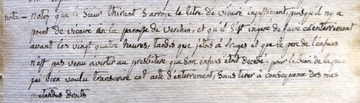 nota - notez que le Sieur thirent S'arroge le titre de vicaire injustement puisqu'il n'y a
point de vicaire en la paroisse de Verchin; et qu'il S'est ingeré de faire cet enterrement
avant les vingt quatre heures, tandis que j'etois à Lugy et que le pere de l'enfans
n'est pas venu avertir au presbitere que son enfans etoit decedé; pour le bien de la paix
j'ai bien voulu transcrire cet acte d'enterrement, Sans tirer à consequence des mes
droits